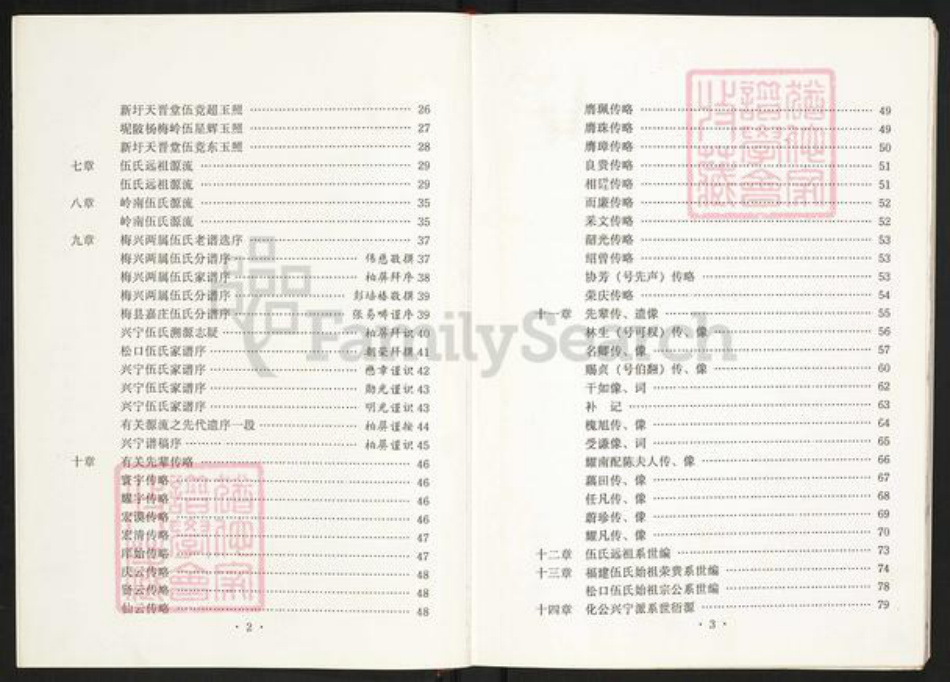 新圩天晋堂伍竞超玉照 26
坭陂杨梅岭伍星辉玉照 27
新圩天晋堂伍竞东玉照 28
七章 伍氏远祖源流 29
伍氏远祖源流 29
八章 岭南伍氏源流 35
岭南伍氏源流 35
九章 梅兴两属伍氏老谱选序 37
梅兴两属伍氏分谱序 伟慈敬撰 37
梅兴两属伍氏家谱序 柏屏拜序 38
梅兴两属伍氏分谱序 彭培椿敬撰 39
梅县嘉庄伍氏分谱序 张易畴谨序 39
兴宁伍氏溯源志疑 柏屏拜识 40
松口伍氏家谱序 朝荣拜撰 41
兴宁伍氏家谱序 懋章谨识 42
兴宁伍氏家谱序 勋光谨识 43
兴宁伍氏家谱序 明光谨识 43
有关源流之先代遗序一段 柏屏谨按 44
兴宁谱稿序 柏屏谨识 45
十章 有关先辈传略 46
寰宇传略 46
耀宇传略 46
宏谟传略 46
宏清传略 47
庠始传略 47
庆云传略 48
贤云传略 48
仙云传略 48
· 2 ·
膺珮传略 49
膺珠传略 49
膺璋传略 50
良贵传略 51
相传略 51
而廉传略 52
采文传略 52
韶光传略 53
绍曾传略 53
协芳（号先声）传略 53
荣庆传略 54
十一章 先辈传、遗像 55
林生（号可权）传、像 56
名卿传、像 57
赐贞（号伯翻）传、像 60
干如像、词 62
补 记 63
槐旭传、像 64
受谦像、词 65
耀南配陈夫人传、像 66
藕田传、像 67
任凡传、像 68
蔚珍传、像 69
耀凡传、像 70
十二章 伍氏远祖系世编 73
十三章 福建伍氏始祖荣贵系世编 74
松口伍氏始祖宗公系世编 78
十四章 化公兴宁派系世衍源 79
· 3 ·
FamilySearch